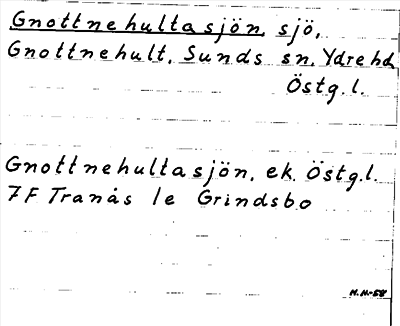 Gnottnehultasjön, sjö,
Gnottnehult, Sunds sn, Ydre hd
Östg. l.
Gnottnehultasjön, ek. Östg. l.
7F Tranås 1e Grindsbo
M.M-58